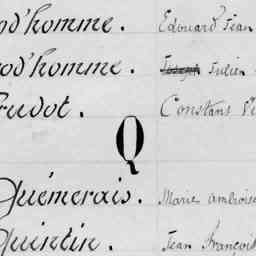 od'homme. Edouard Jean
od'homme. Joseph Julien
rudot. Constant Vi
Q
Quémerais. Marie ambroise
Quintin. Jean françois